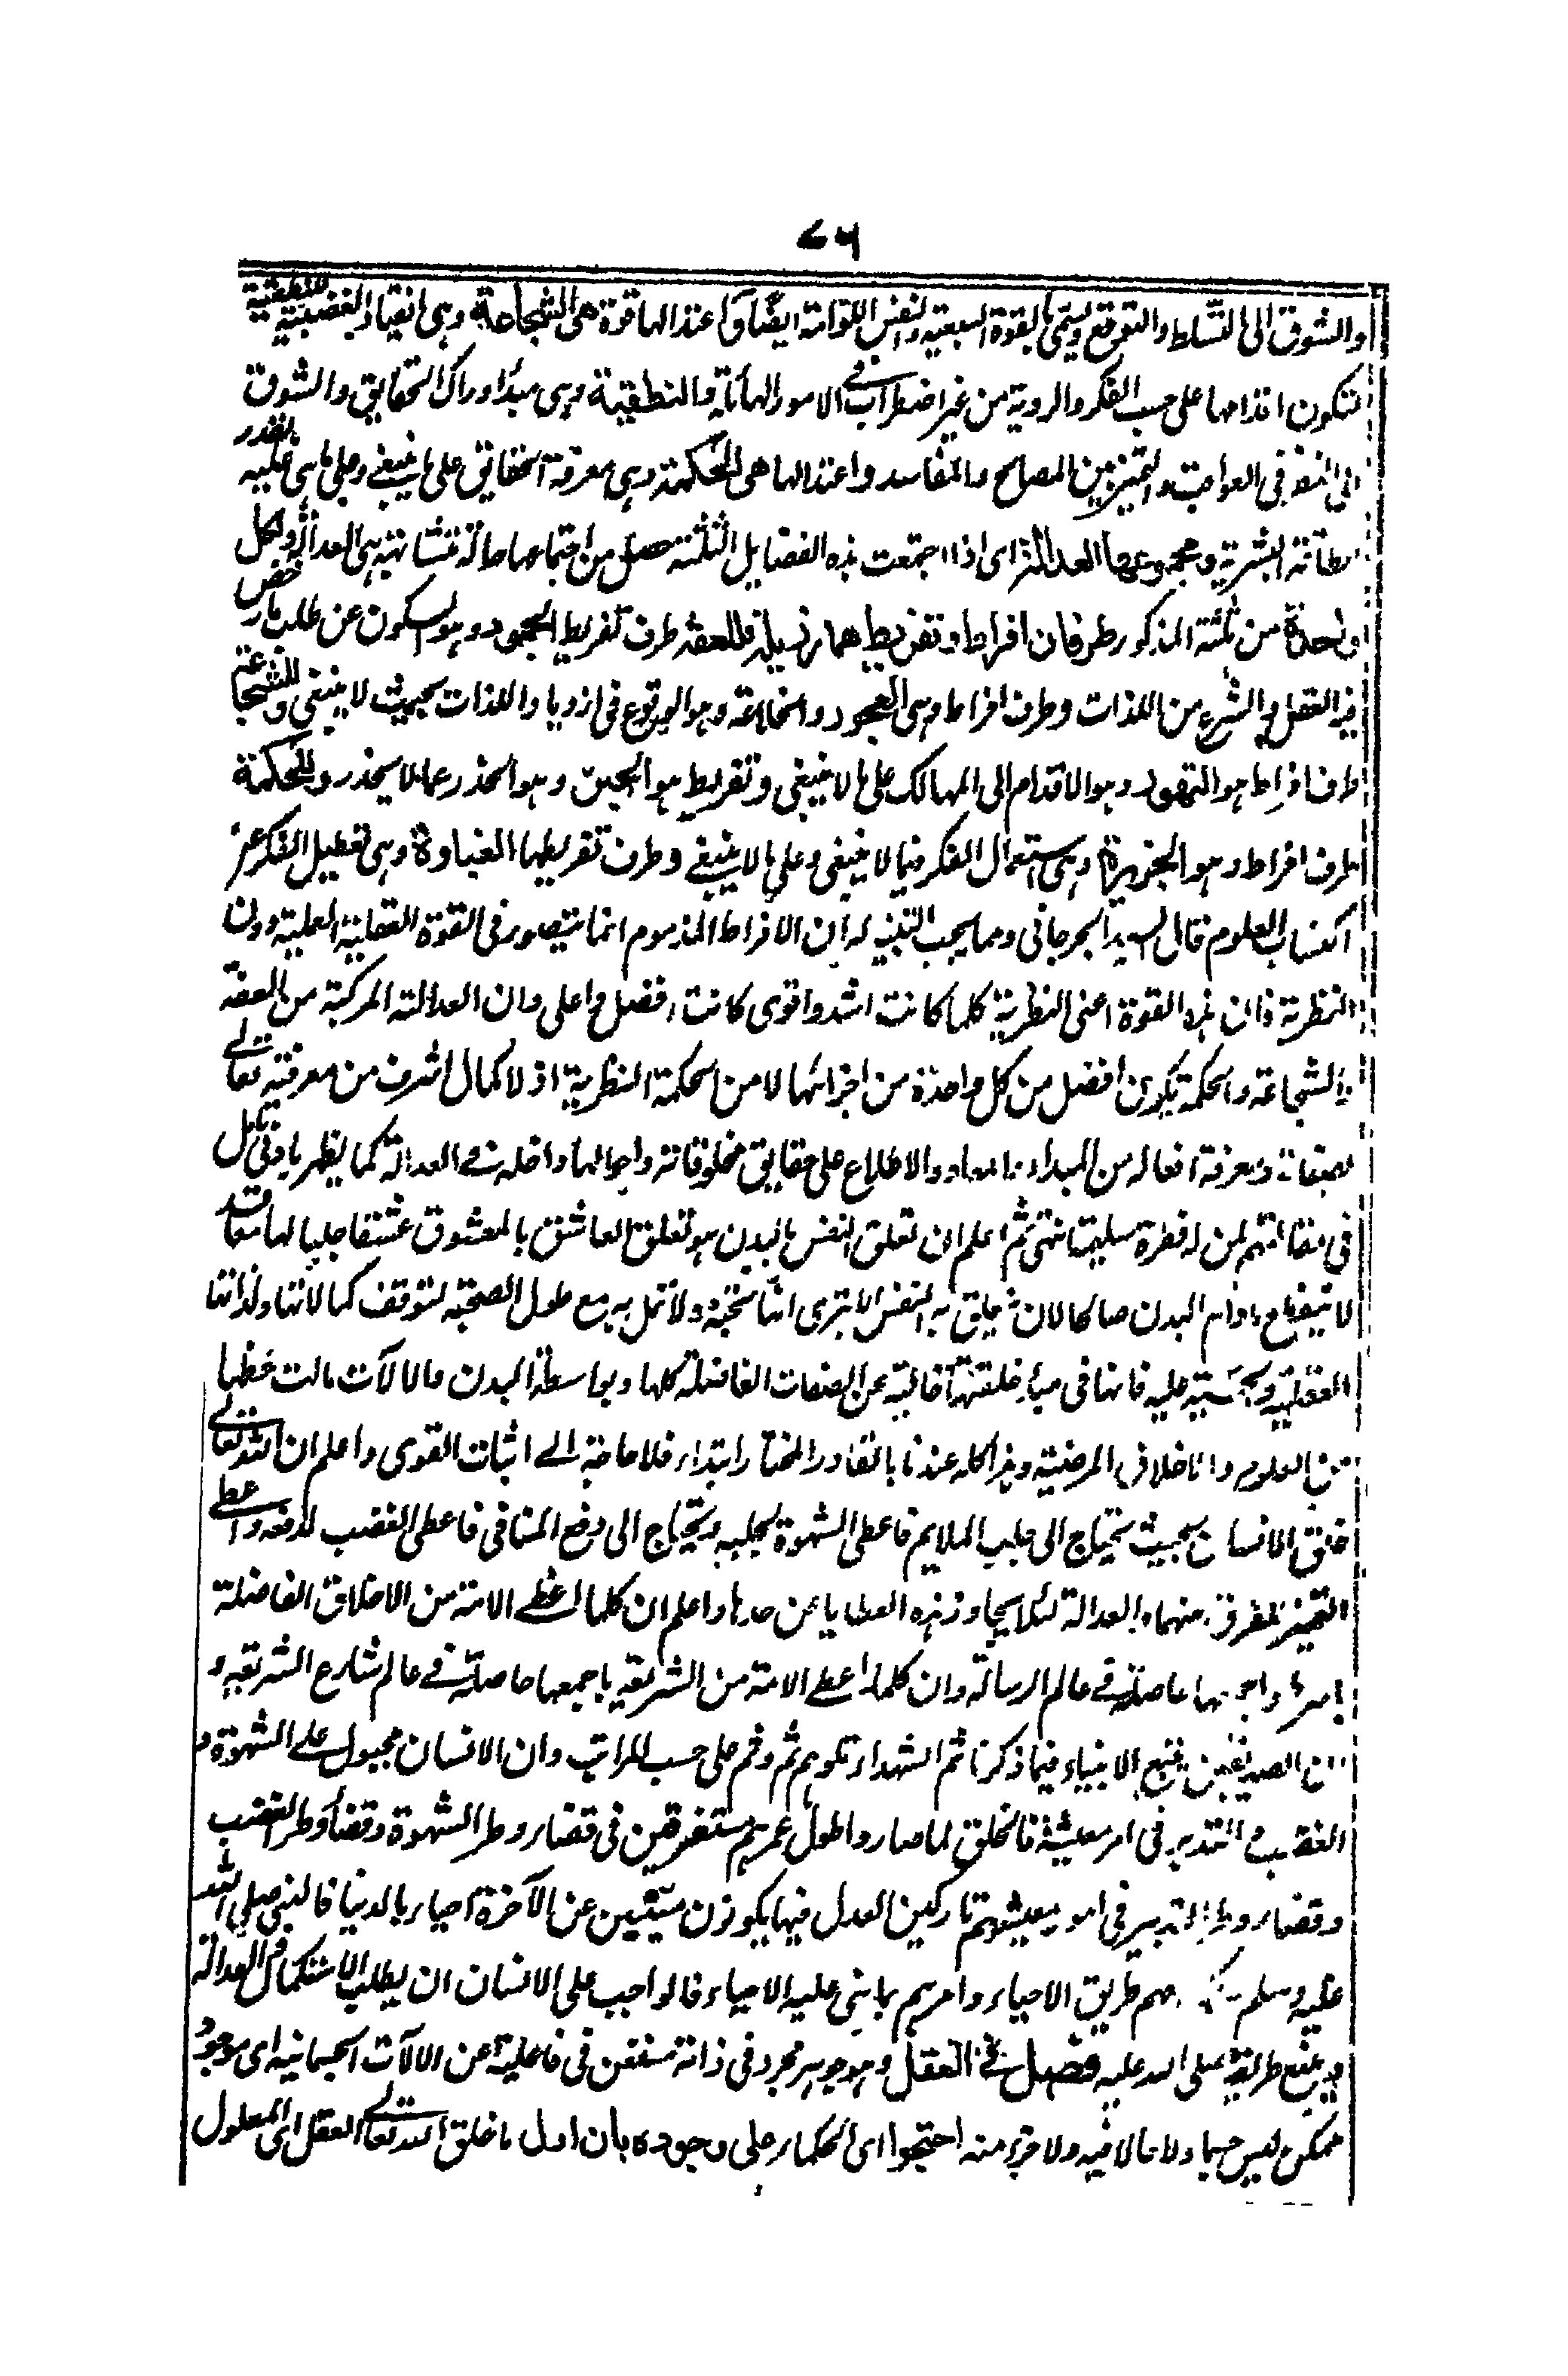 ٧٦
والشوق الى التسلط والترفع ويسمى بالقوة السبعية والنفس اللوامة ايضا واعتدالها قوة هى الشجاعة وهى انقياد الغضبية للنطقية
لتكون اقدامها على حسب الفكر والروية من غير اضطراب فى الامور الهائلة والنطقية وهى مبدأ ادراك الحقايق والشوق
الى النظر فى العواقب والتميز بين المصالح والمفاسد واعتدالها هى الحكمة وهى معرفة الحقايق على ما ينبغى وعلى ما هى عليه بقدر
الطاقة البشرية ومجموعها العدالة اى اذا اجتمعت هذه الفضايل الثلثة حصل من اجتماعها حالة متشابهة هى العدالة ولكل
واحدة من ثلثة المذكور طرفان افراط وتفريط هما رذيلة فللعفة طرف تفريط الجمود وهو السكون عن طلب ما رخص
فيه العقل والشرع من اللذات وطرف افراط وهى الفجور والخلاعة وهو الوقوع فى ازدياد اللذات بحيث لا ينبغى وللشجاعة
طرف افراط هو التهور وهو الاقدام الى المهالك على ما لا ينبغى وتفريط هو الجبن وهو الحذر عما لا يحذر وللحكمة
طرف افراط وهو الجربزة وهى استعمال الفكر فيما لا ينبغى وعلى ما لا ينبغى وطرف تفريطها الغباوة وهى تعطيل الفكر عن
اكتساب العلوم قال السيد الجرجانى ومما يجب التنبيه له ان الافراط المذموم انما يتصور فى القوة العقلية العملية دون
النظرية فان هذه القوة اعنى النظرية كلما كانت اشد واقوى كانت افضل واعلى وان العدالة المركبة من العفة
والشجاعة والحكمة يكون افضل من كل واحدة من اجزائها لا من الحكمة النظرية اذ لا كمال اشرف من معرفته تعالى
بصفاته ومعرفة افعاله من المبداء والمعاد والاطلاع على حقايق مخلوقاته واحوالها داخلة فى العدالة كما يظهر بادنى تامل
فى مقالتهم لمن له فطرة سليمة انتهى ثم اعلم ان تعلق النفس بالبدن هو تعلق العاشق بالمعشوق عشقا جليا لهاميا قد
لا ينقطع مادام البدن صالحا لان يتعلق به النفس الا يترى انها تحبه ولا تمل به مع طول الصحبة لتوقف كمالاتها ولذاتها
العقلية والحسية عليه فانها فى مبدأ خلقتها خالية عن الصفات الفاضلة كلها وبواسطة البدن والآلات نالت حظها
من العلوم والاخلاق المرضية وهذا كله عندنا بالقادر المختار ابتداء فلا حاجة الى اثبات القوى واعلم ان الله تعالى
خلق الانسان بحيث يحتاج الى جلب الملايم فاعطى الشهوة لجلبه ويحتاج الى دفع المنافى فاعطى الغضب لدفعه واعطى
التميز لمفرق منهما والعدالة لئلا يجاوز هذه العطايا عن حدها واعلم ان كلما اعطى الامة من الاخلاق الفاضلة
باسرها واجمعها حاصلة فى عالم الرسالة وان كلما اعطى الامة من الشريعة باجمعها حاصلة فى عالم شارع الشريعة و
ان الصديقين يتبع الانبياء فيما ذكرنا ثم الشهداء تلوهم ثم وثم على حسب المراتب وان الانسان مجبول على الشهوة و
الغضب والتدبير فى امر معيشة فالخلق لما صاروا طول عمرهم مستغرقين فى قضاء وطر الشهوة وقضاء وطر الغضب
وقضاء وطر التدبير فى امور معيشتهم تاركين العدل فيها يكونون ميتين عن الآخرة احياء بالدنيا فالنبى صلى الله
عليه وسلم هم طريق الاحياء وامرهم بما بنى عليه الاحياء فالواجب على الانسان ان يطلب الاستكمال العدالة
ويتبع طريقه صلى الله عليه فصل فى العقل وهو جوهر مجرد فى ذاته مستغن فى فاعليته عن الآلات الجسمانية اى موجود
ممكن ليس جسما ولا حالا فيه ولا جزء منه احتجوا اى الحكماء على وجوده بان اول ما خلق الله تعالى العقل اى المعلول